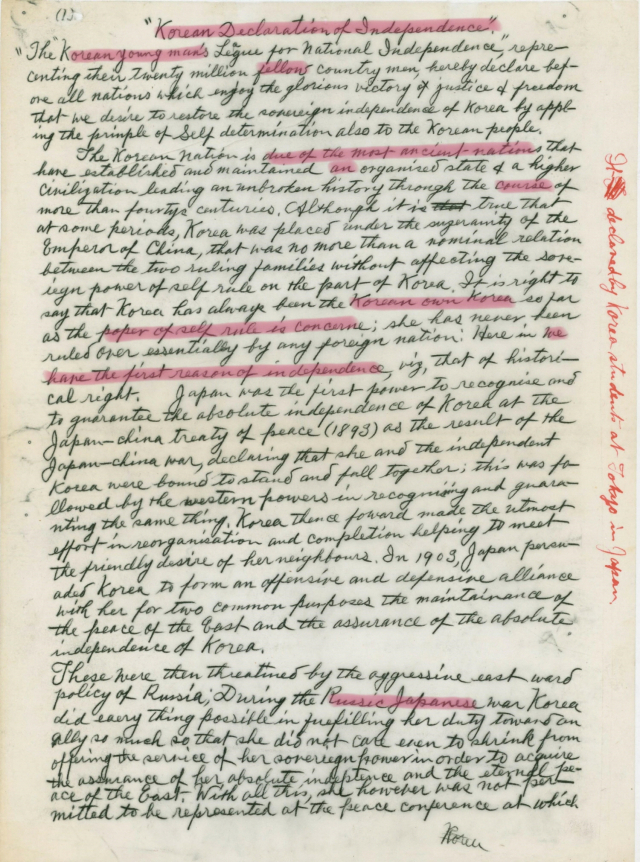 (1).
"Korean Declaration of Independence".
"The "Korean young man's Legue for National Independence," repre-
centing their twenty million fellow country men, hereby declare bef-
ore all nations which enjoy the glorious victory of justice & freedom
that we desire to restore the sovereign independence of Korea by appl-
ing the prinple of Self determination also to the Korean people.
The Korean Nation is one of the most ancient nations that
have established and maintained an organised state & a higher
civilization leading an unbroken history through the course of
more than fourtys centuries. Although it is that true that
at some periods, Korea was placed under the suzerainty of the
Emperor of China, that was no more than a nominal relation
between the two ruling families without affecting the sove-
reign power of self rule on the part of Korea. It is right to
say that Korea has always been the Korean own Korea so far
as the poper of self rule is concerne; she has never been
ruled over essentially by any foreign nation. Here in we
have the first reason of independence, viz, that of histori-
cal right. Japan was the first power to recognise and
to guarantee the absolute independence of Korea at the
Japan-china treaty of peace (1893) as the result of the
Japan-china war, declaring that she and the independent
Korea were bound to stand and fall together; this was fo-
llowed by the western powers in recognising and guara-
nting the same thing. Korea thence foward made the utmost
effort in reorganisation and completion helping to meet
the friendly desire of her neighbours. In 1903, Japan persu-
aded Korea to form an offensive and defensive alliance
with her for two common purposes the maintainance of
the peace of the East and the assurance of the absolute
independence of Korea.
These were then threatined by the aggressive east ward
policy of Russia; During the Russic Japanese war Korea
did eaery thing possible in fuefilling her duty toward an
ally so much so that she did not care even to shrink from
offering the service of her sovereign power in order to acquire
the assurance of her absolute indeptence and the eternal pe-
ace of the East. With all this, she however was not per-
mitted to be represented at the peace conference at which
Korea
It declared by Korea students at Tokyo in Japan